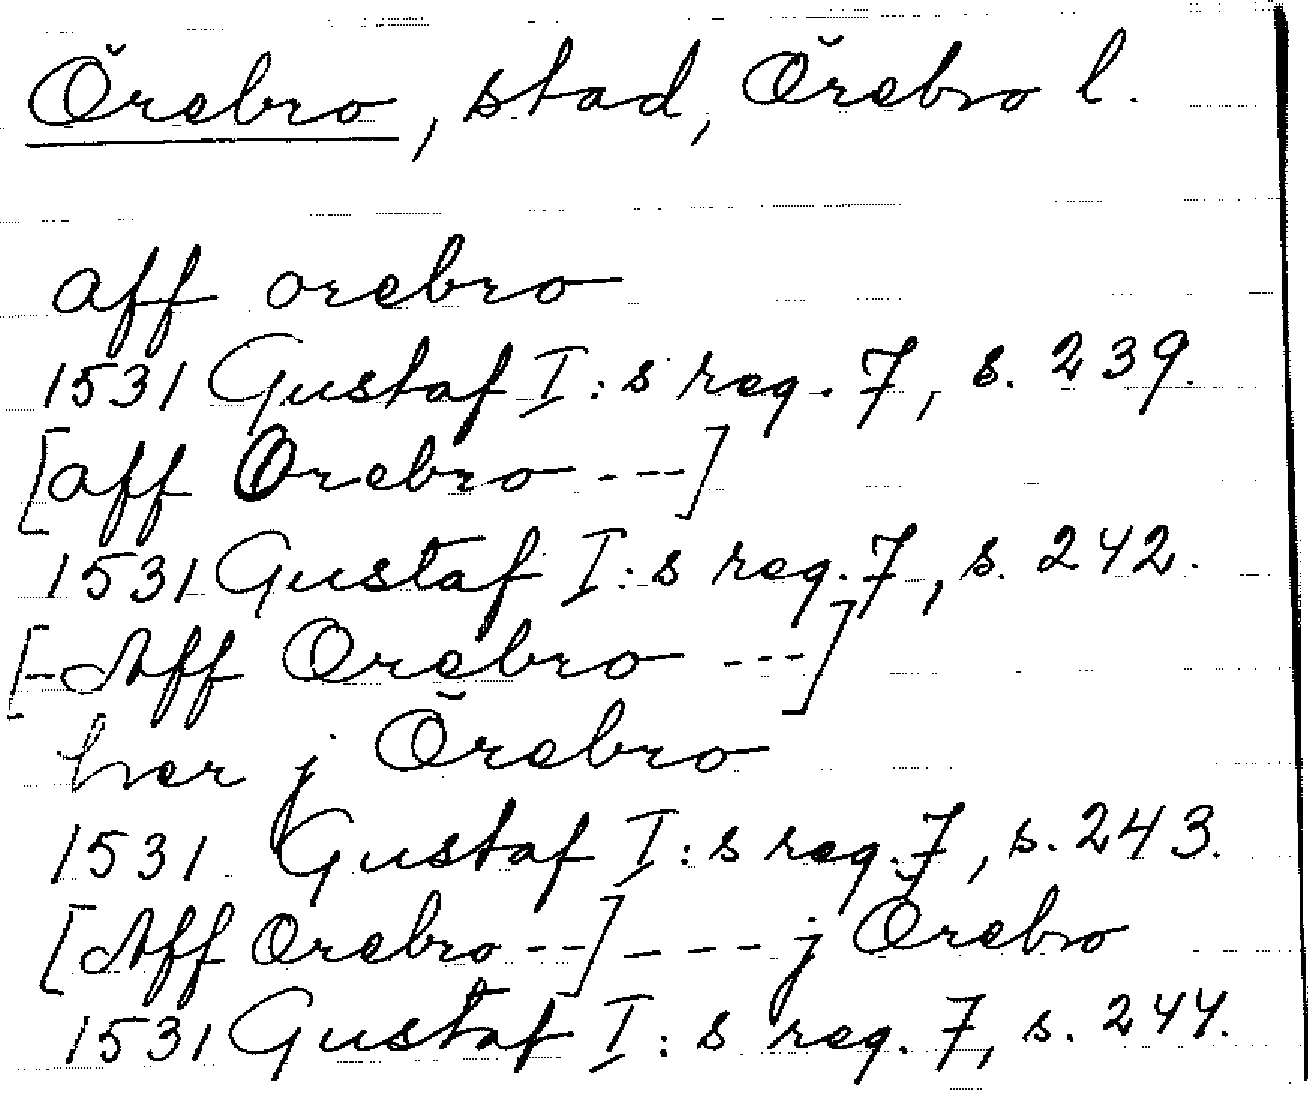 Örebro, stad, Örebro l.
aff orebro
1531 Gustaf I:s reg. 7, s. 239.
[aff Orebro ---]
1531 Gustaf I:s reg. 7, s. 242.
[-Aff Orebro ---]
her j Örebro
1531 Gustaf I:s reg. 7, s. 243.
[Aff Orebro --] ---- j Örebro
1531 Gustaf I:s reg. 7, s. 244.